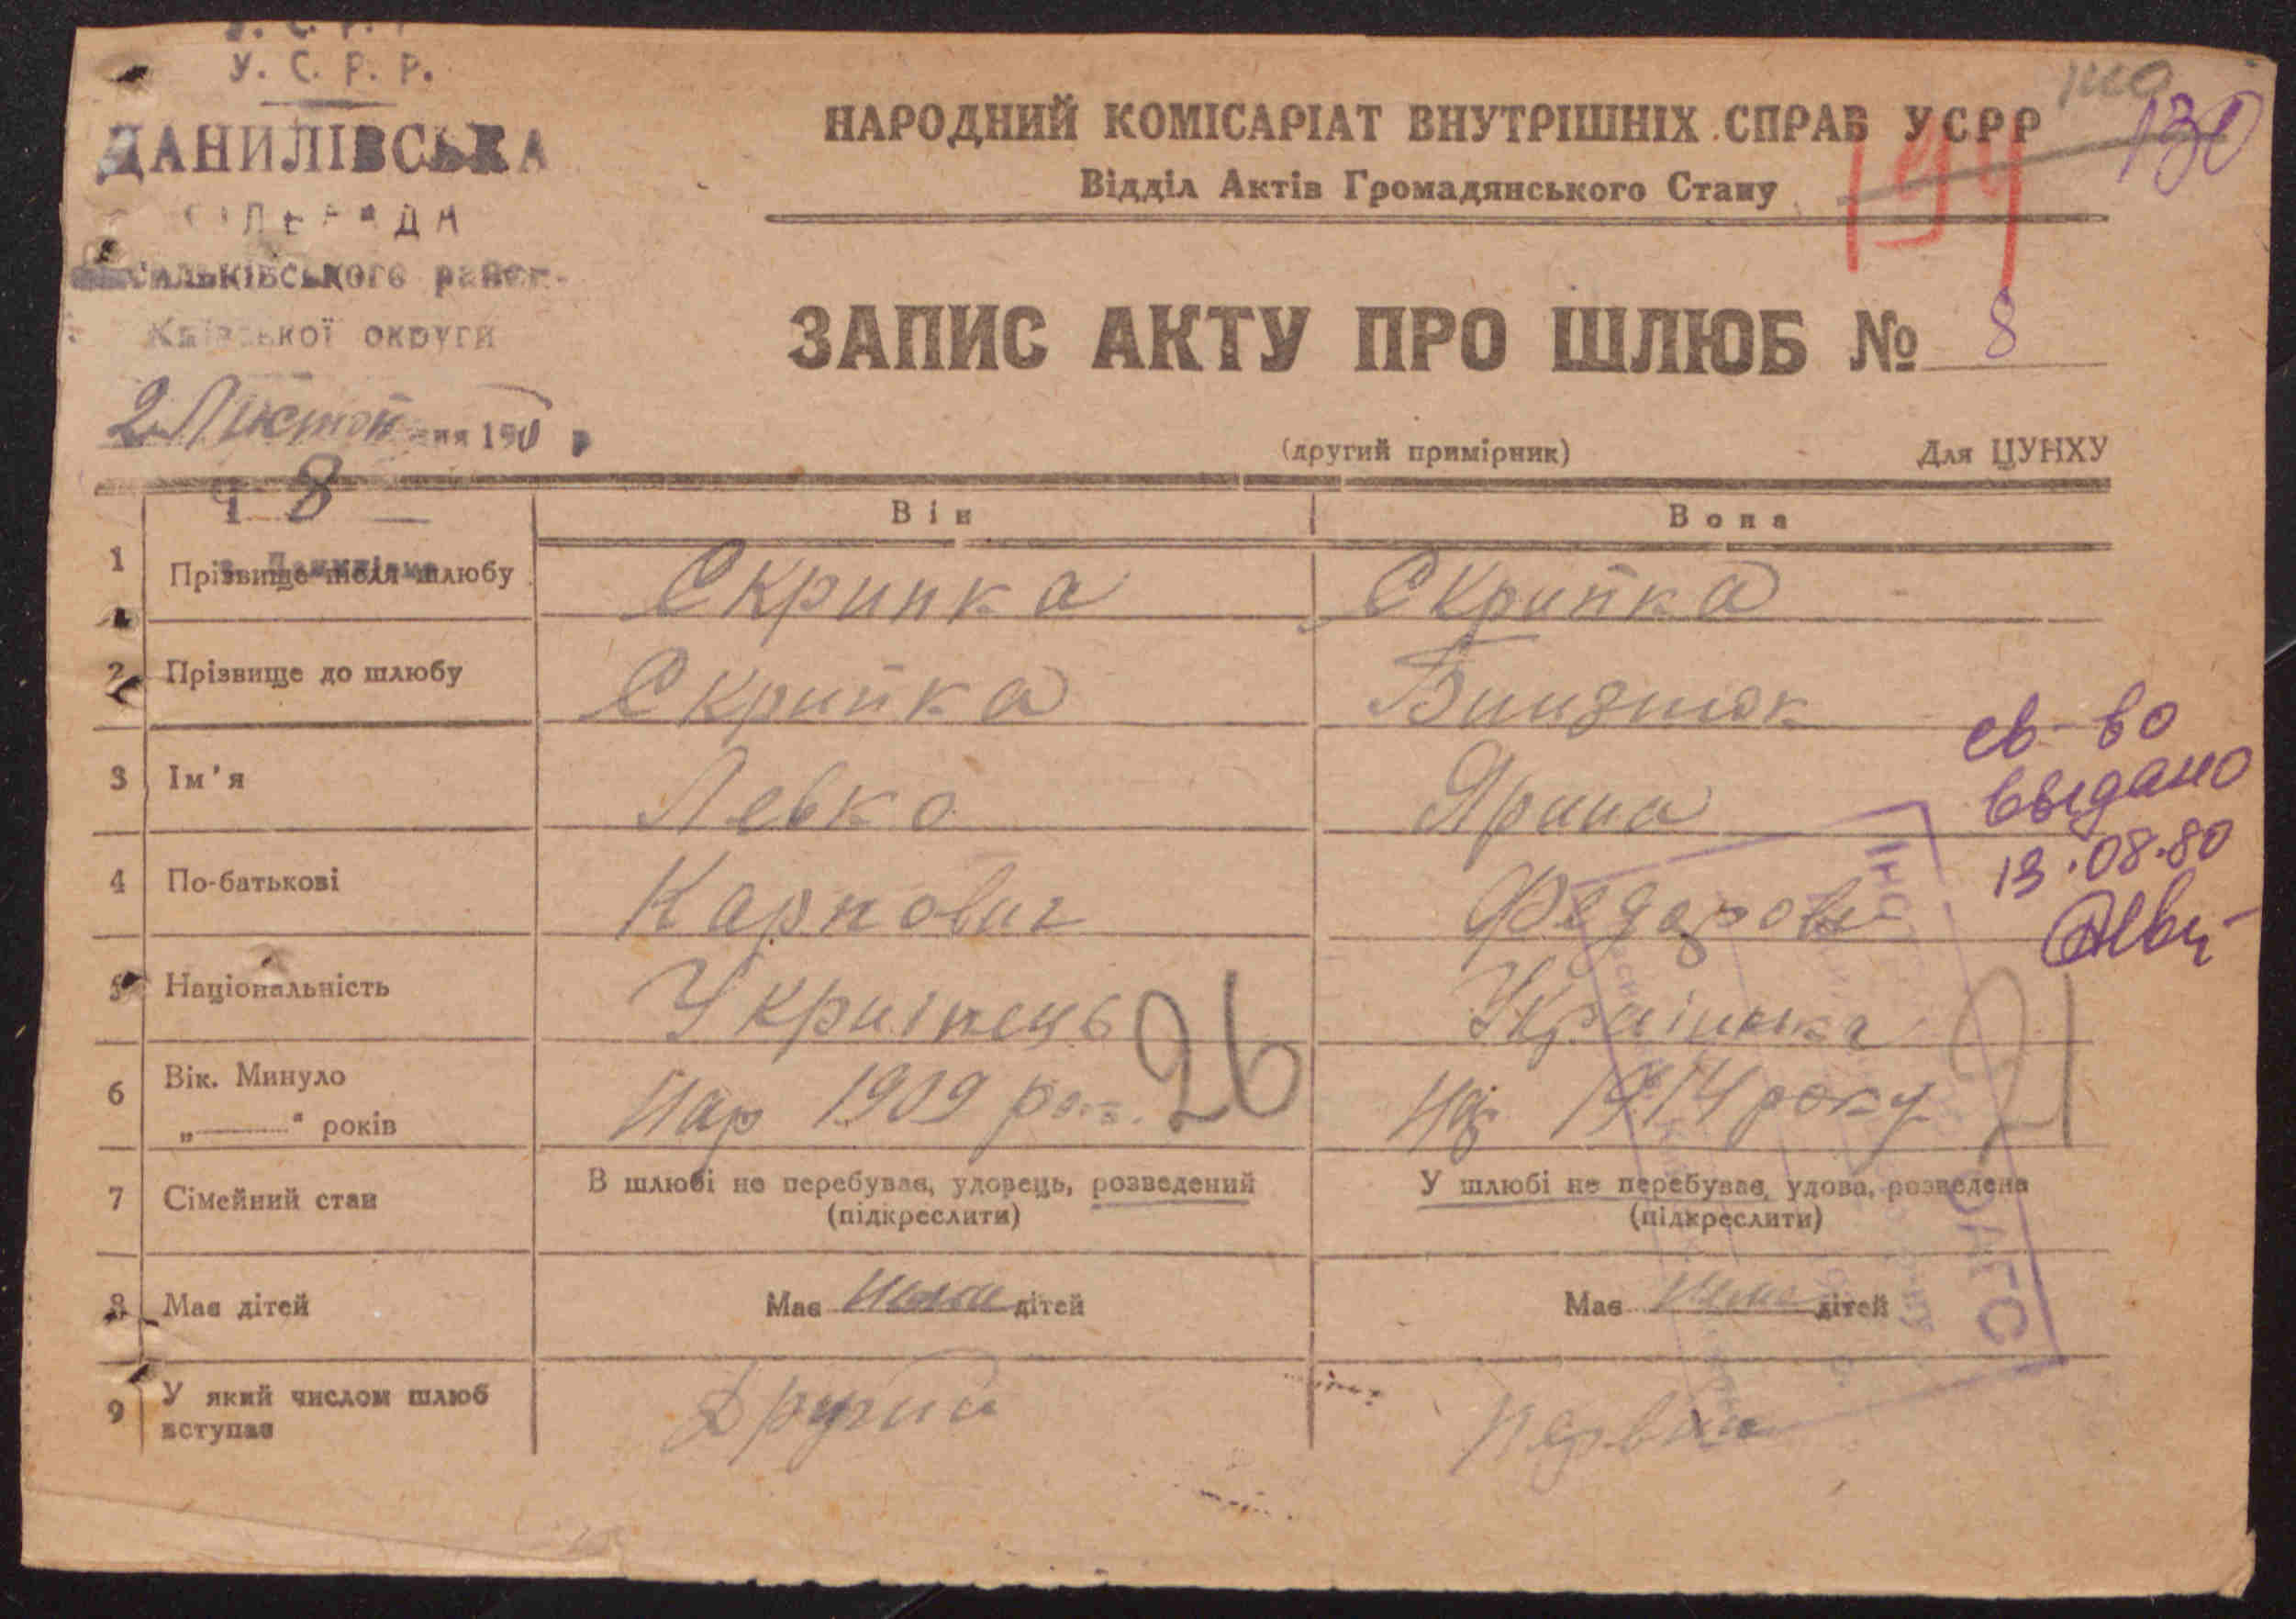 У. С. Р. Р.
ДАНИЛІВСЬКА
СІЛЬРАДА
Васильківського район.
Київської округи
2 Листоп 19
Ч 8
НАРОДНИЙ КОМІСАРІАТ ВНУТРІШНІХ СПРАВ УСРР
Відділ Актів Громадянського Стану
130
ЗАПИС АКТУ ПРО ШЛЮБ № 8
(другий примірник) Для ЦУНХУ
Він Вона
1 Прізвище після шлюбу Скрипка Скрипка
2 Прізвище до шлюбу Скрипка
3 Ім'я Левко Ярина
4 По-батькові Карпович Федоровн
5 Національність Украінець Украінка
6 Вік. Минуло
„———“ років Нар 1909 рок. 26 На 1914 року 21
7 Сімейний стан В шлюбі не перебував, удовець, розведений У шлюбі не перебував, удова, розведена
(підкреслити) (підкреслити)
8 Має дітей Має нема дітей Має нема дітей
9 У який числом шлюб
вступає Другий Первий
св-во
выдано
13.08.80
ЗАГС